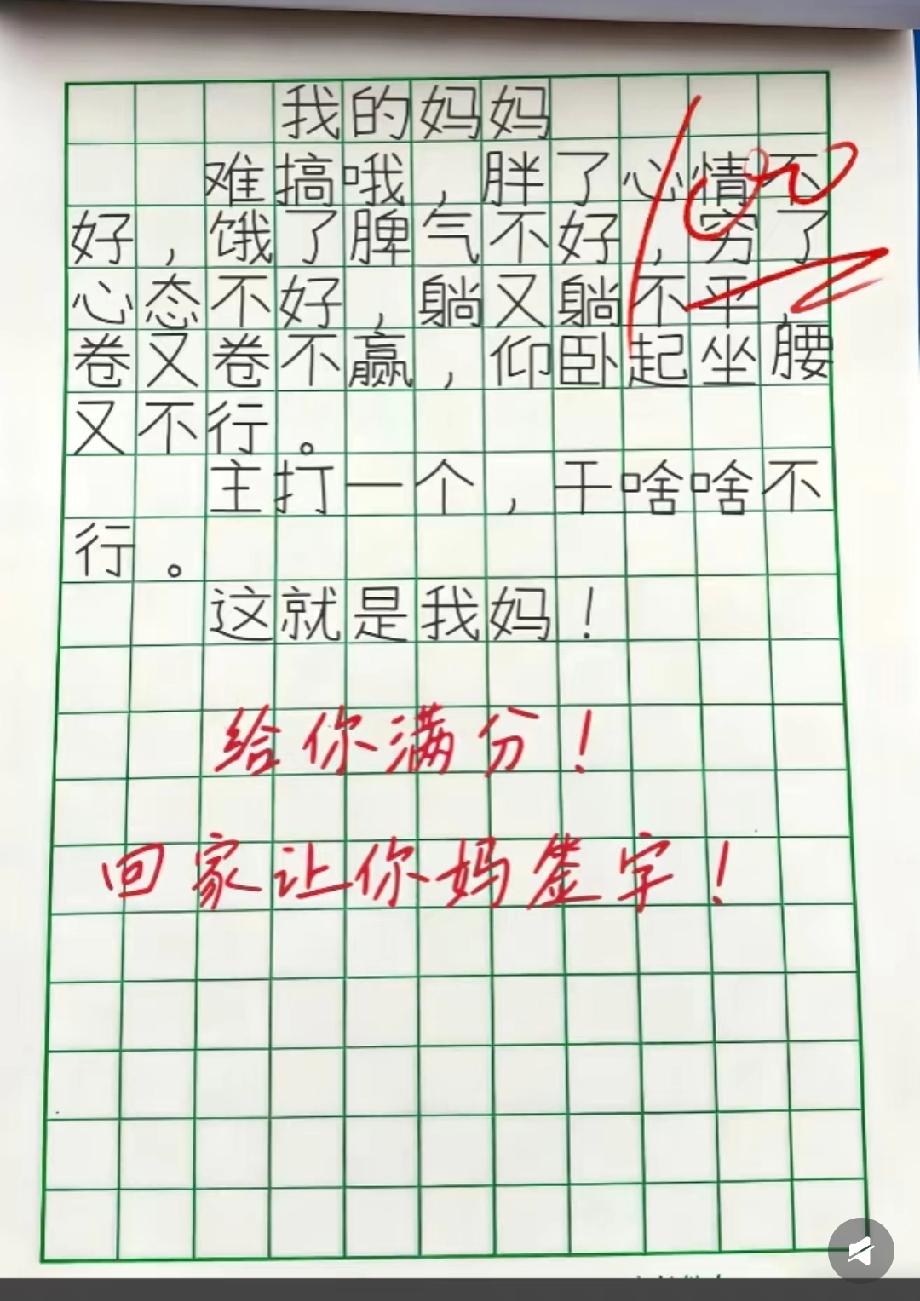 我的妈妈
难搞哦，胖了心情不
好，饿了脾气不好，穷了
心态不好，躺又躺不平，
卷又卷不赢，仰卧起坐腰
又不行。
主打一个，干啥啥不
行。
这就是我妈！
100
给你满分！
回家让你妈签字！